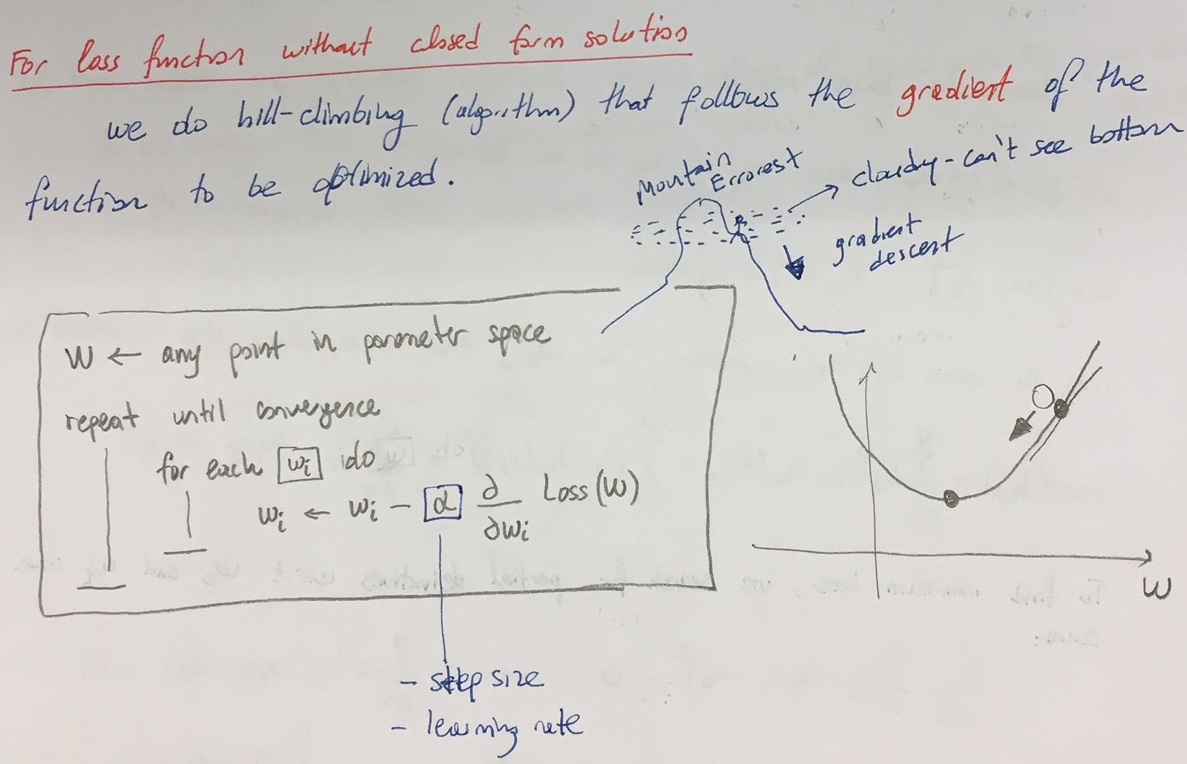 For loss function without closed form solution
we do hill-climbing (algorithm) that follows the gradient of the
function to be optimized.
Mountain
Errorest
cloudy - can't see bottom
gradient
descent
W ← any point in parameter space
repeat until convergence
for each wi do
wi ← wi - α ∂/∂wi Loss(W)
- step size
- learning rate
W